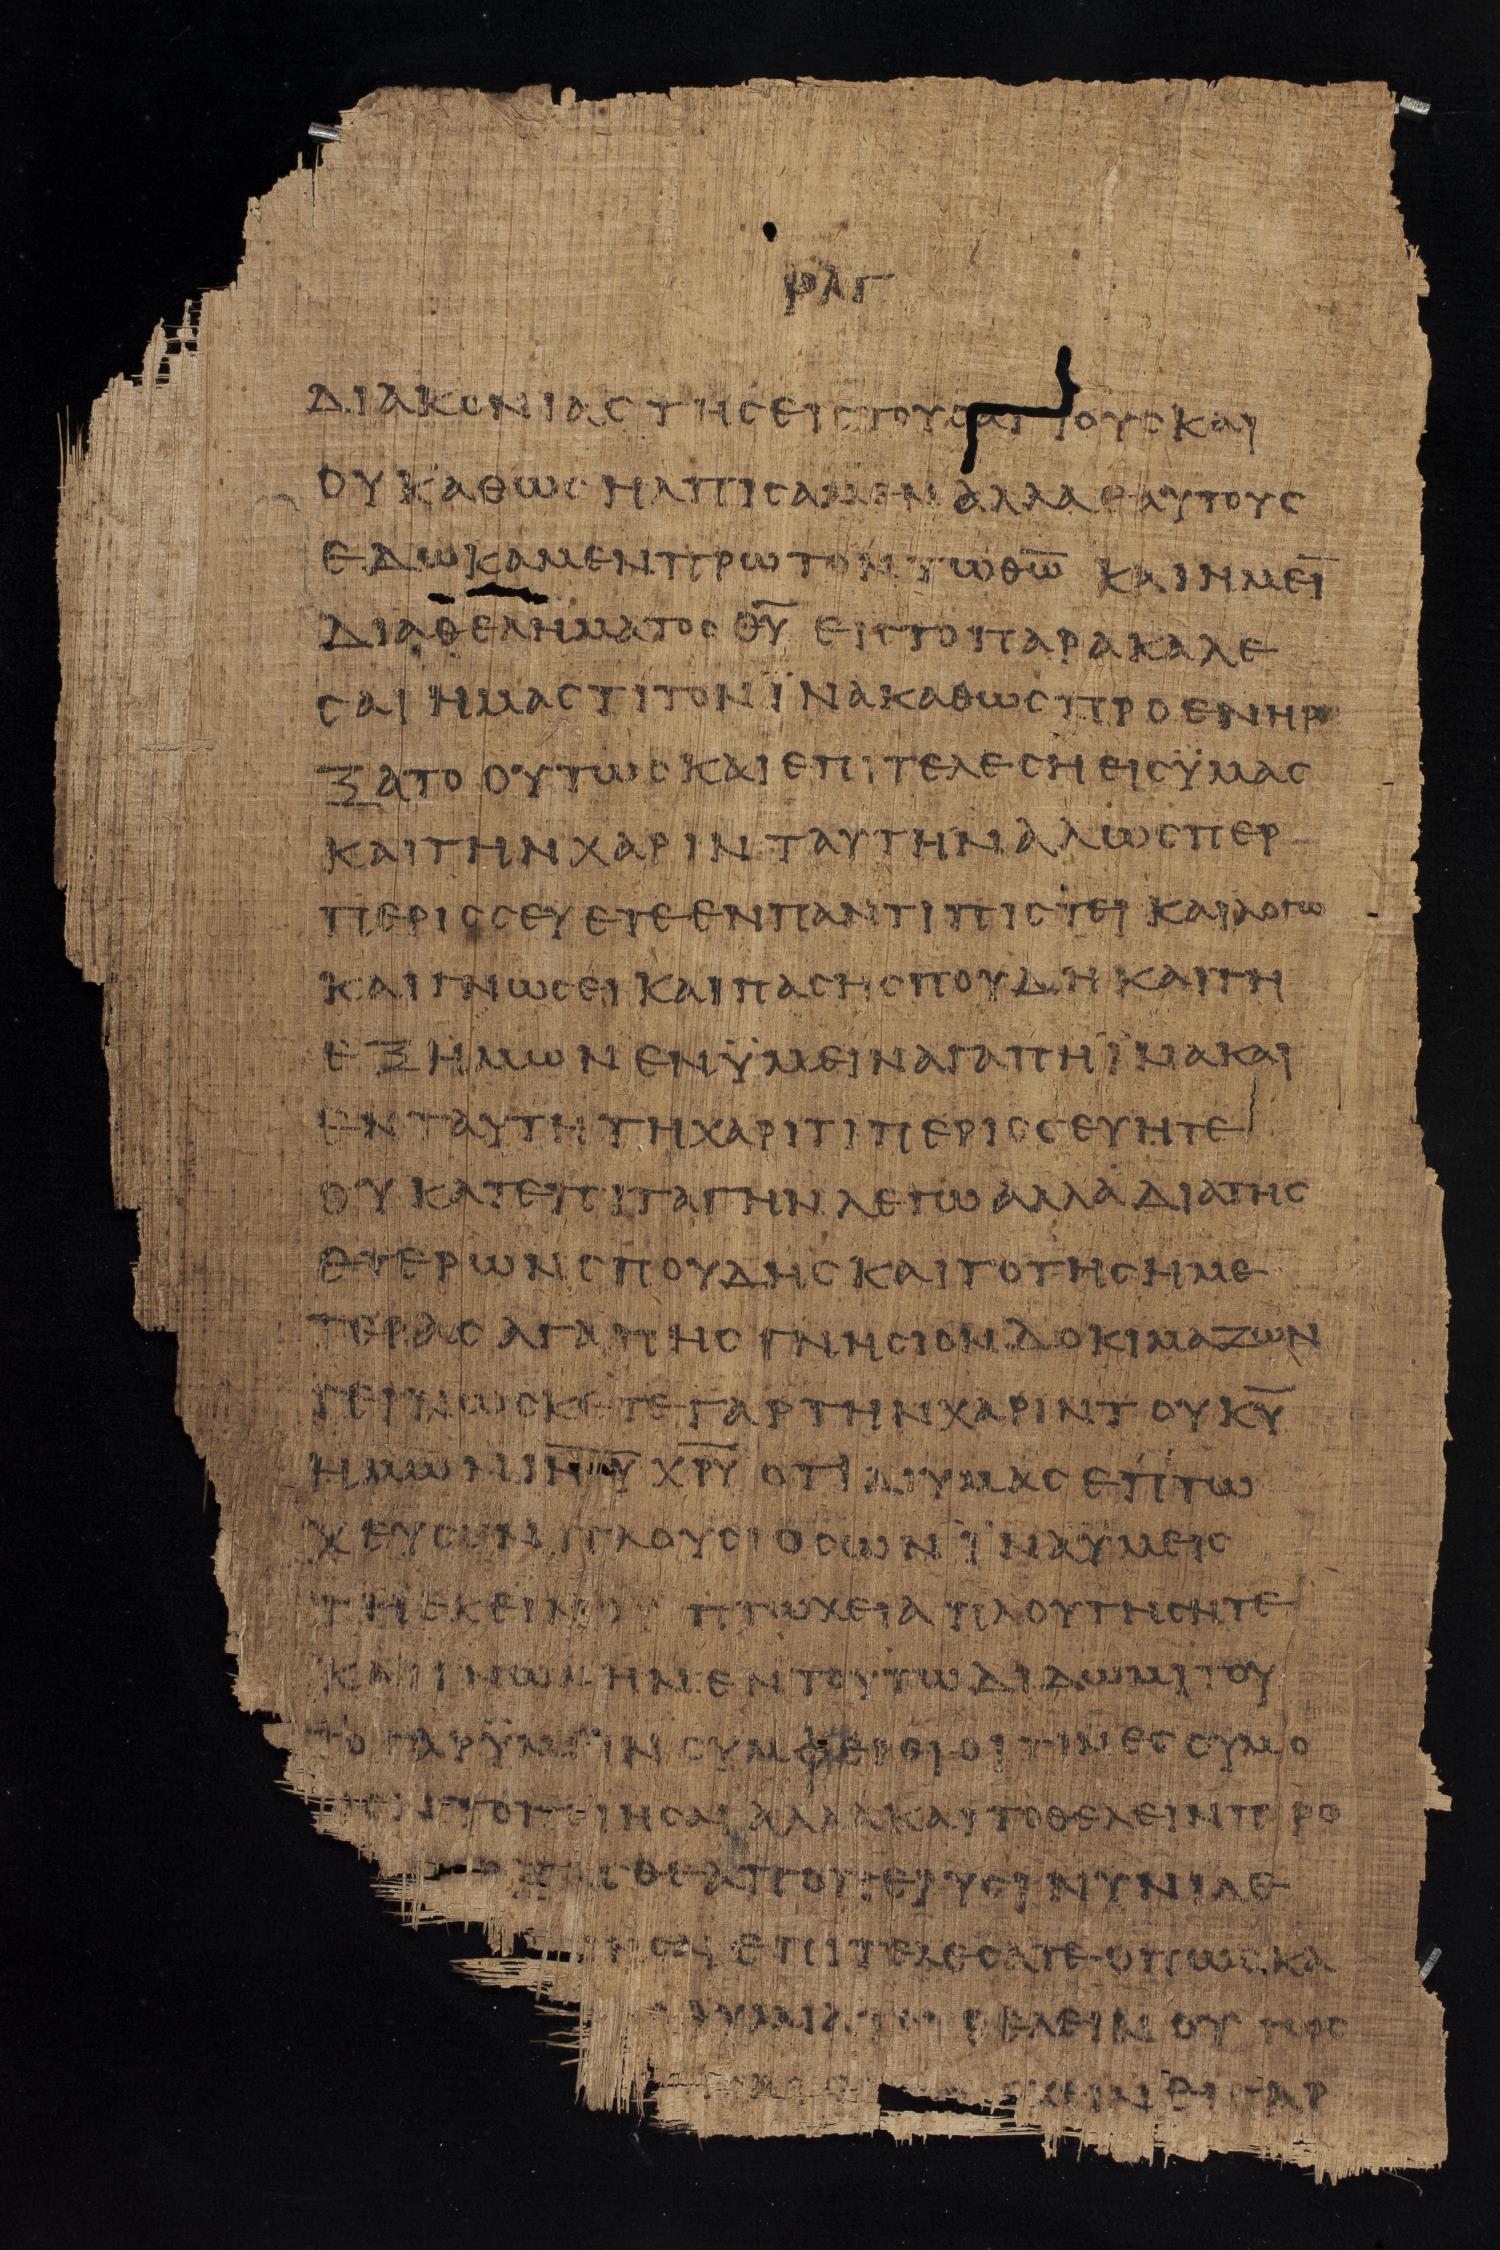 ρλγ
διακονιας της εις τους αγιους και
ου καθως ηλπισαμεν αλλα εαυτους
εδωκαμεν πρωτον τω θω̅ και ημει̅
δια θεληματος θυ̅ εις το παρακαλε
σαι ημας τιτον ϊνα καθως προενηρ
ξατο ουτως και επιτελεση εις ϋμας
και την χαριν ταυτην αλ ωσπερ
περισσευετε εν παντι πιστει και λογω
και γνωσει και παση σπουδη και τη
εξ ημων εν ϋμειν αγαπη ϊνα και
εν ταυτη τη χαριτι περισσευητε
ου κατ επιταγην λεγω αλλα δια της
ετερων σπουδης και το της ημε
τερας αγαπης γνησιον δοκιμαζων
γεινωσκετε γαρ την χαριν του κυ̅
ημων ιηυ̅ χρυ̅ οτι δι υμας επτω
χευσεν πλουσιος ων ϊνα ϋμεις
τη εκεινου πτωχεια πλουτησητε
και γνωμην εν τουτω διδωμι του
το γαρ ϋμειν συμφερει οιτινες ου μο
νον το ποιησαι αλλα και το θελειν προ
περυσι νυνι δε
ησαι επιτελεσατε οπως κα
θυμια του θελειν ουτως
εχειν ει γαρ